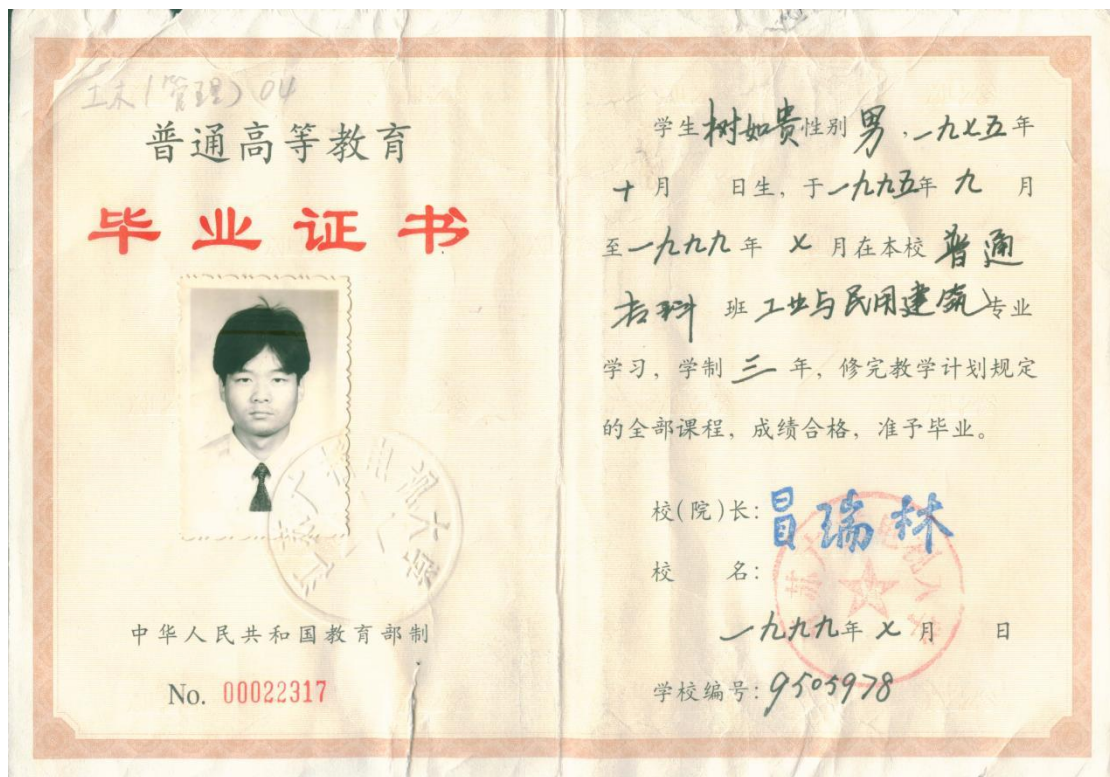 土木(管理)04
普通高等教育
毕业证书
中华人民共和国教育部制
No. 00022317
学生树如贵性别 男 ,一九七五年
十月 日生, 于一九九五年 九 月
至一九九九年 七 月在本校 普通
专科 班 工业与民用建筑 专业
学习, 学制 三 年, 修完教学计划规定
的全部课程, 成绩合格, 准予毕业。
校(院)长: 冒瑞林
校 名:
一九九九年 七 月 日
学校编号: 9505978